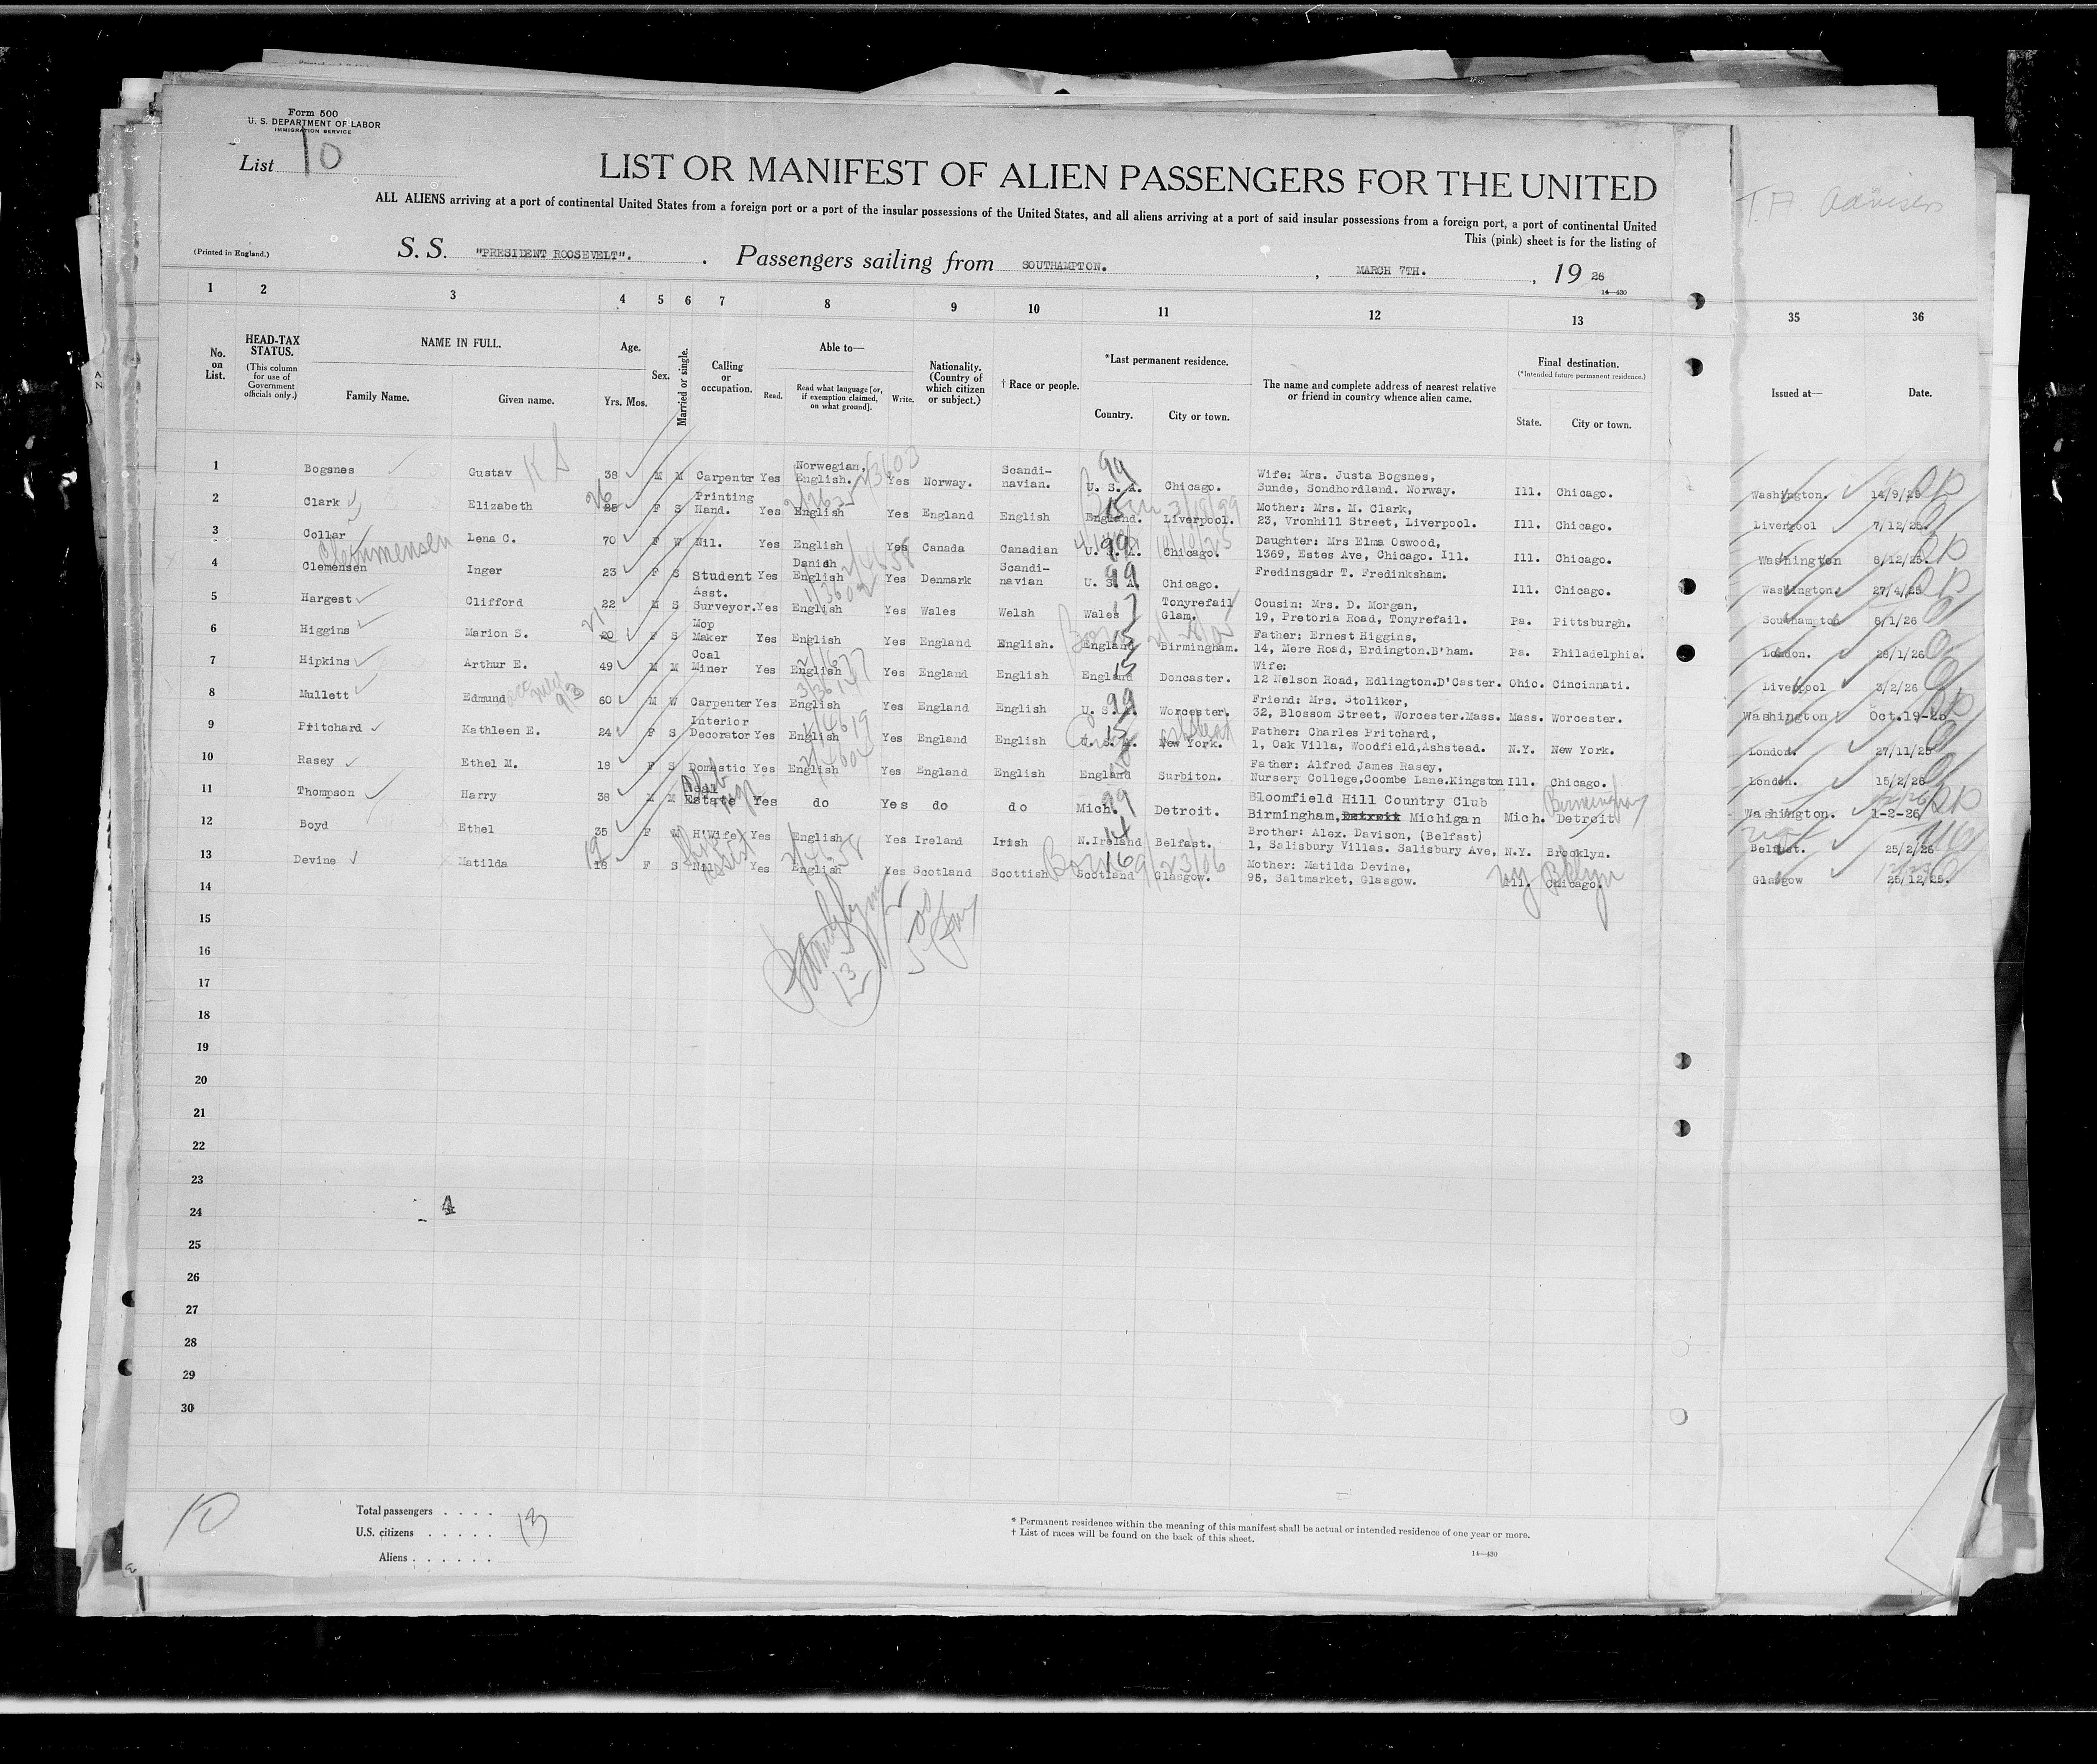 Form 500
U. S. DEPARTMENT OF LABOR
IMMIGRATION SERVICE
List 10
LIST OR MANIFEST OF ALIEN PASSENGERS FOR THE UNITED
T.A. Advisers
ALL ALIENS arriving at a port of continental United States from a foreign port or a port of the insular possessions of the United States, and all aliens arriving at a port of said insular possessions from a foreign port, a port of continental United
This (pink) sheet is for the listing of
(Printed in England.)
S. S. "PRESIDENT ROOSEVELT". . Passengers sailing from SOUTHAMPTON. , MARCH 7TH. , 19 26
14—430
1 2 3 4 5 6 7 8 9 10 11 12 13 35 36
No. on List.
HEAD-TAX STATUS.
(This column for use of Government officials only.)
NAME IN FULL.
Family Name. Given name.
Age.
Yrs. Mos.
Sex.
Married or single.
Calling or occupation.
Able to—
Read. Read what language [or, if exemption claimed, on what ground]. Write.
Nationality. (Country of which citizen or subject.)
† Race or people.
*Last permanent residence.
Country. City or town.
The name and complete address of nearest relative or friend in country whence alien came.
Final destination.
(*Intended future permanent residence.)
State. City or town.
Issued at— Date.
1 Bogsnes Gustav 38 M M Carpenter Yes Norwegian, English. Yes Norway. Scandi-navian. U. S. A. 99 Chicago. Wife: Mrs. Justa Bogsnes, Sunde, Sondhordland. Norway. Ill. Chicago. Washington. 14/9/25
2 Clark Elizabeth 25 26 F S Printing Hand. Yes English Yes England English England. 15 Liverpool. Mother: Mrs. M. Clark, 23, Vronhill Street, Liverpool. Ill. Chicago. Liverpool 7/12/25.
3 Collar Lena C. 70 F W Nil. Yes English Yes Canada Canadian U. S. A. 99 Chicago. Daughter: Mrs Elma Oswood, 1369, Estes Ave, Chicago. Ill. Ill. Chicago. Washington 8/12/25.
4 Clemensen Clemmensen Inger 23 F S Student Yes Danish English Yes Denmark Scandi-navian U. S. A. 99 Chicago. Fredinsgadr T. Fredinksham. Ill. Chicago. Washington. 27/4/25
5 Hargest Clifford 22 M S Asst. Surveyor. Yes English Yes Wales Welsh Wales 17 Tonyrefail Glam. Cousin: Mrs. D. Morgan, 19, Pretoria Road, Tonyrefail. Pa. Pittsburgh. Southampton 8/1/26
6 Higgins Marion S. 20 21 F S Mop Maker Yes English Yes England English. England 15 Birmingham. Father: Ernest Higgins, 14, Mere Road, Erdington.B'ham. Pa. Philadelphia. London. 28/1/26
7 Hipkins Arthur E. 49 M M Coal Miner Yes English Yes England English England 15 Doncaster. Wife: 12 Nelson Road, Edlington.D'Caster. Ohio. Cincinnati. Liverpool 3/2/26
8 Mullett Edmund 60 M W Carpenter Yes English Yes England English U. S. A. 99 Worcester. Friend: Mrs. Stoliker, 32, Blossom Street, Worcester.Mass. Mass. Worcester. Washington Oct.19-25
9 Pritchard Kathleen E. 24 F S Interior Decorator Yes English Yes England English U. S. A. 15 New York. Ashstead Father: Charles Pritchard, 1, Oak Villa, Woodfield,Ashstead. N.Y. New York. London. 27/11/25
10 Rasey Ethel M. 18 F S Domestic Yes English Yes England English England Surbiton. Father: Alfred James Rasey, Nursery College,Coombe Lane.Kingston Ill. Chicago. London. 15/2/26
11 Thompson Harry 38 M M Real Estate Club mgr Yes do Yes do do Mich. 99 Detroit. Bloomfield Hill Country Club Birmingham, Detroit Michigan Mich. Detroit Birmingham Washington. 1-2-26
12 Boyd Ethel 35 F M H'Wife Yes English Yes Ireland Irish N.Ireland 14 Belfast. Brother: Alex. Davison, (Belfast) 1, Salisbury Villas. Salisbury Ave, N.Y. Brooklyn. Belfast. 25/2/26
13 Devine Matilda 18 19 F S Nil Yes English Yes Scotland Scottish Scotland 16 Born 9/23/06 Glasgow. Mother: Matilda Devine, 95, Saltmarket, Glasgow. Ill. Chicago. NY Bklyn Glasgow 25/12/25.
14
15
16
17
18
19
20
21
22
23
24
25
26
27
28
29
30
10
Total passengers . . . .
U.S. citizens . . . . . 13
Aliens . . . . . .
* Permanent residence within the meaning of this manifest shall be actual or intended residence of one year or more.
† List of races will be found on the back of this sheet.
14—430